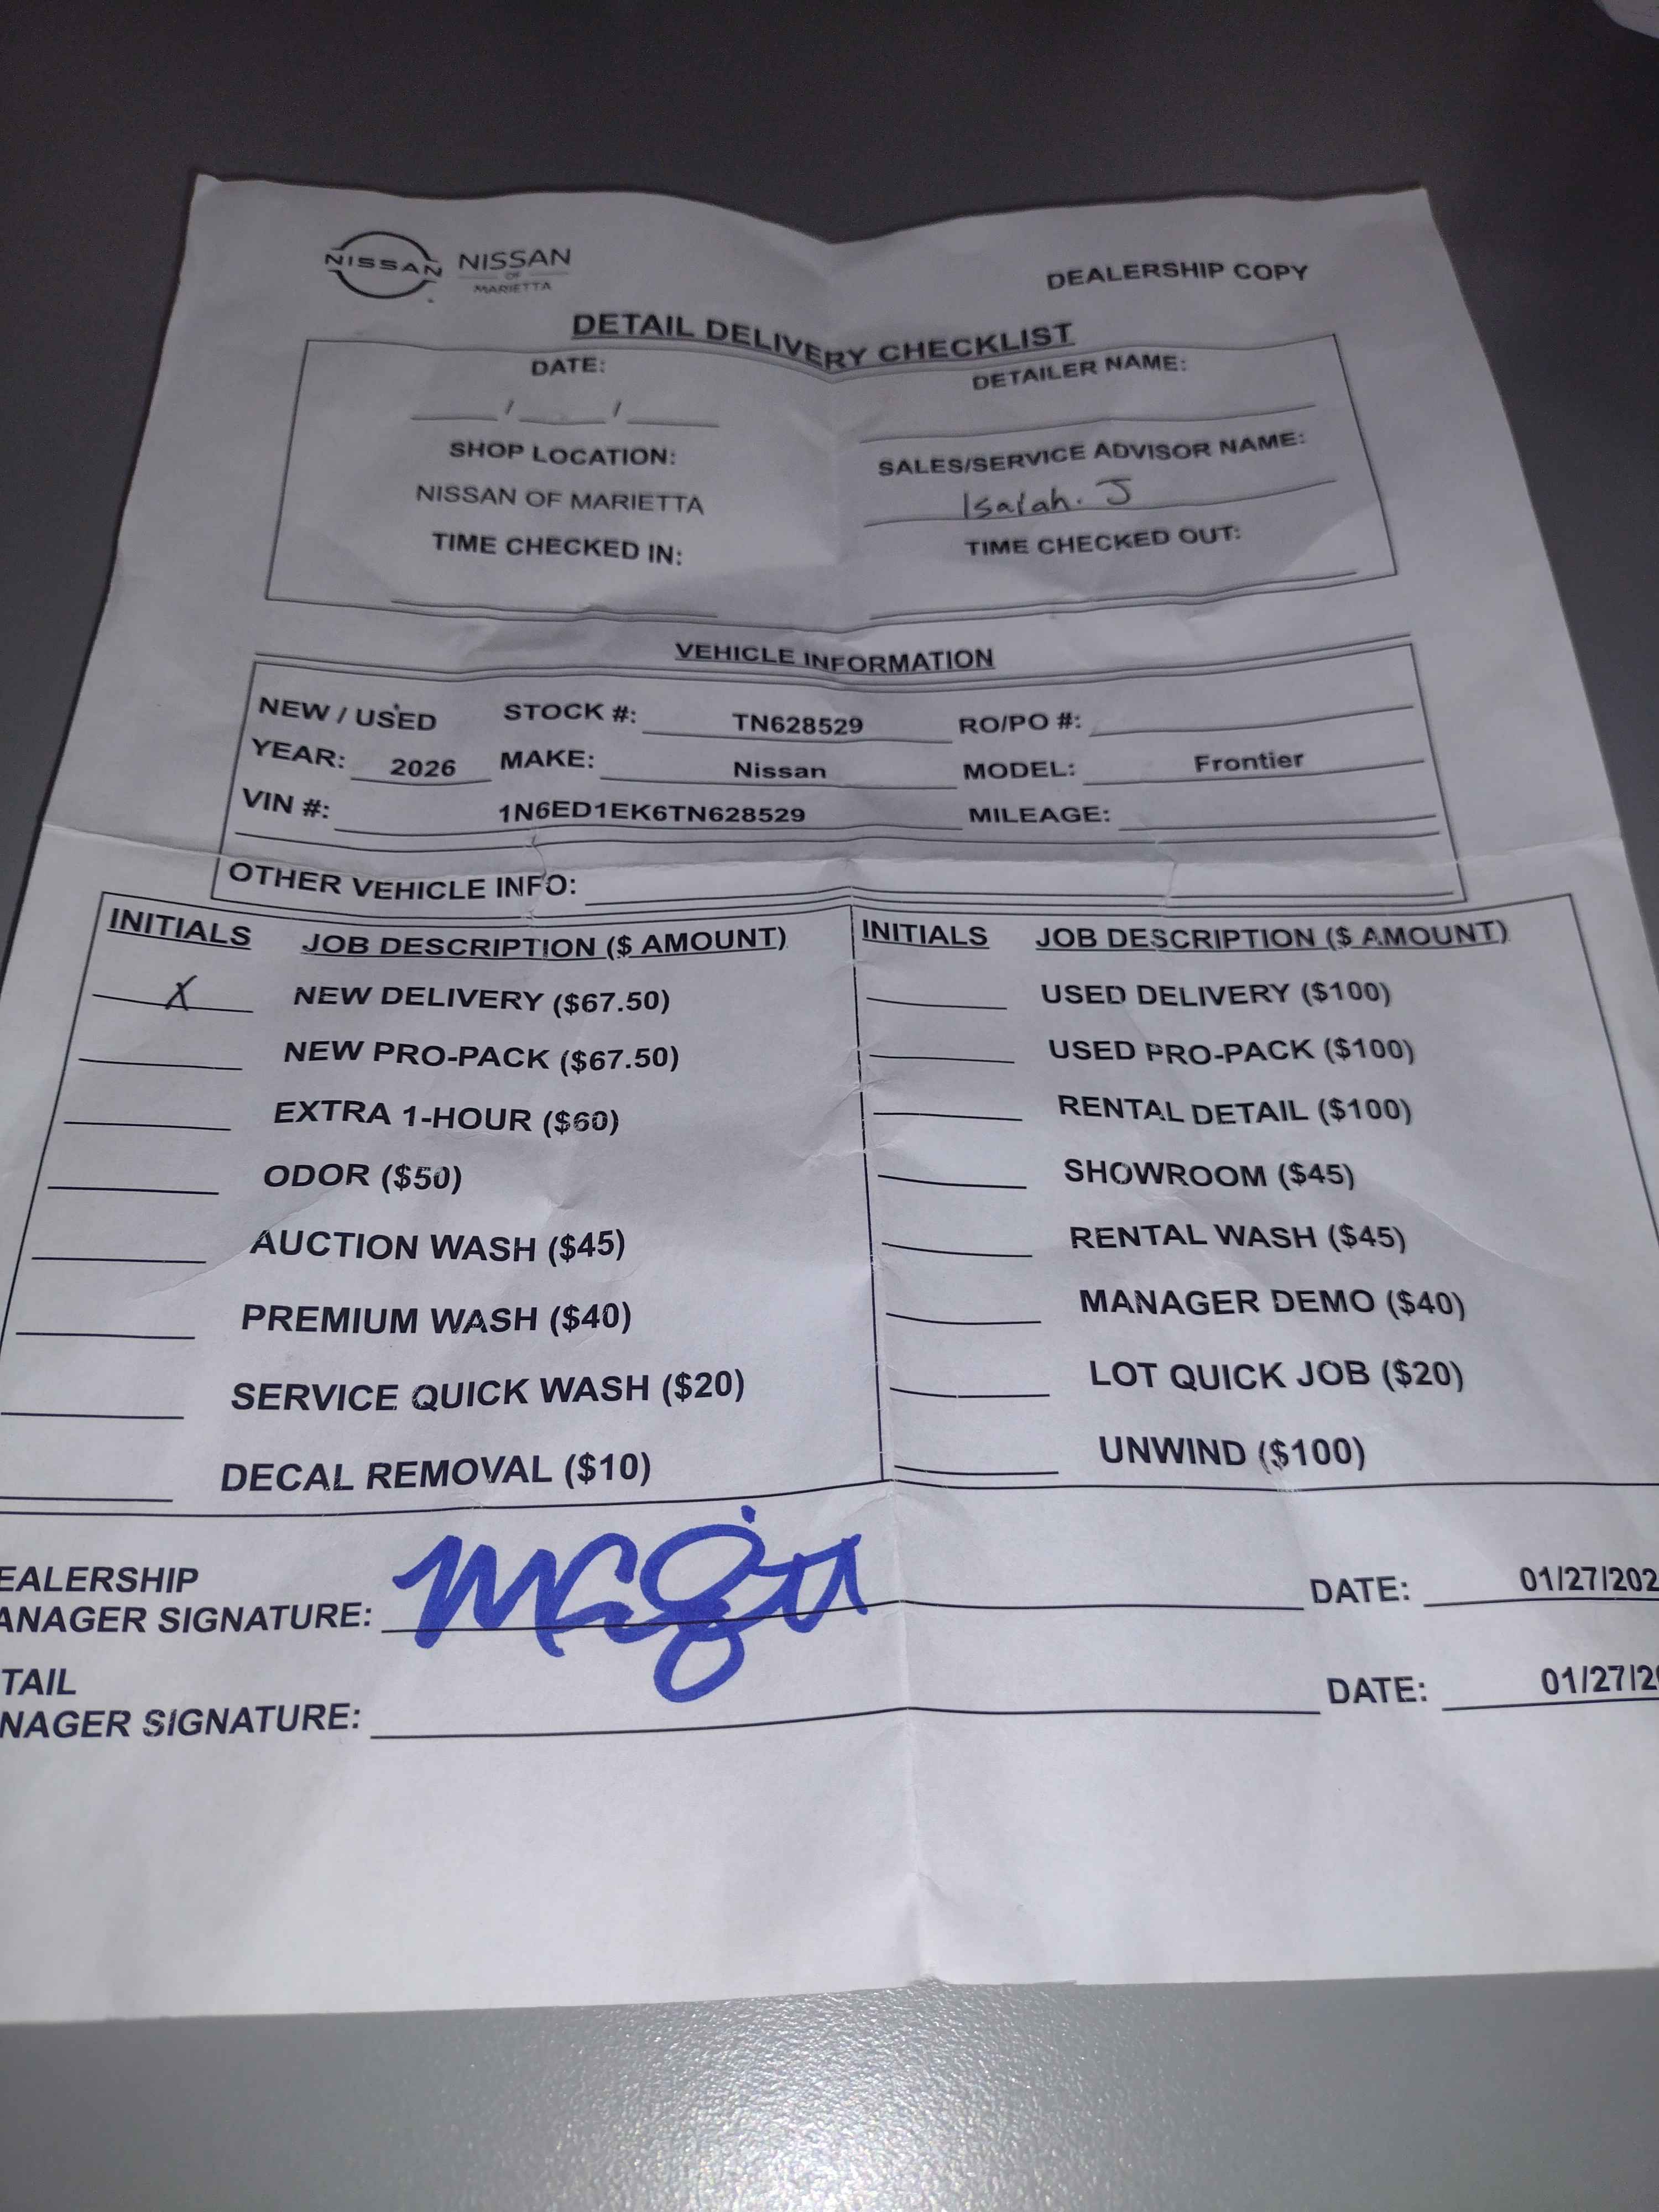 NISSAN NISSAN
OF
MARIETTA
DEALERSHIP COPY
DETAIL DELIVERY CHECKLIST
DATE: DETAILER NAME:
____/____/____
SHOP LOCATION: SALES/SERVICE ADVISOR NAME:
NISSAN OF MARIETTA Isaiah. J
TIME CHECKED IN: TIME CHECKED OUT:
VEHICLE INFORMATION
NEW / USED STOCK #: TN628529 RO/PO #:
YEAR: 2026 MAKE: Nissan MODEL: Frontier
VIN #: 1N6ED1EK6TN628529 MILEAGE:
OTHER VEHICLE INFO:
INITIALS JOB DESCRIPTION ($ AMOUNT) INITIALS JOB DESCRIPTION ($ AMOUNT)
X NEW DELIVERY ($67.50) USED DELIVERY ($100)
NEW PRO-PACK ($67.50) USED PRO-PACK ($100)
EXTRA 1-HOUR ($60) RENTAL DETAIL ($100)
ODOR ($50) SHOWROOM ($45)
AUCTION WASH ($45) RENTAL WASH ($45)
PREMIUM WASH ($40) MANAGER DEMO ($40)
SERVICE QUICK WASH ($20) LOT QUICK JOB ($20)
DECAL REMOVAL ($10) UNWIND ($100)
EALERSHIP
ANAGER SIGNATURE: DATE: 01/27/202
TAIL
NAGER SIGNATURE: DATE: 01/27/20